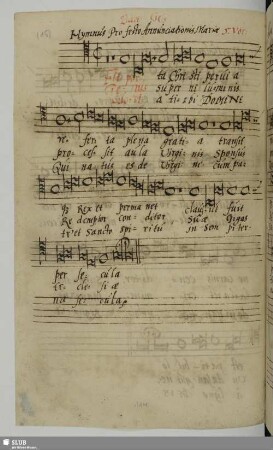 Hymnus Pro festo Annunciationis Mariæ
ta Christi peruia
super ni luminis
a ti bi DOMINE
re fer ta plena grati a transit
pro ces sit aula Virgi nis Sponsus
Qui na tus es de Virgi ne Cum pa
Rex et perma net clausus fuit
Re demptor con ditor Suæ Gigas
tre et Sancto spi ritu in sem pi ter
per se cula
ec cle si æ
na se cula
SLUB